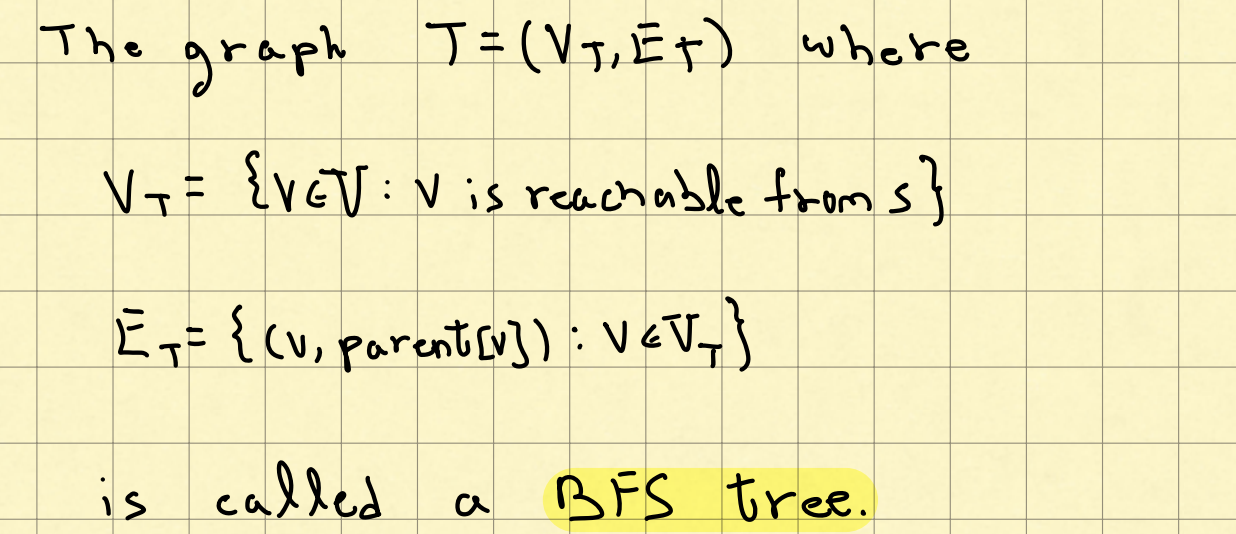 The graph T=(V_T,E_T) where
V_T = {v∈V : v is reachable from s}
E_T = {(v, parent[v]) : v∈V_T}
is called a BFS tree.